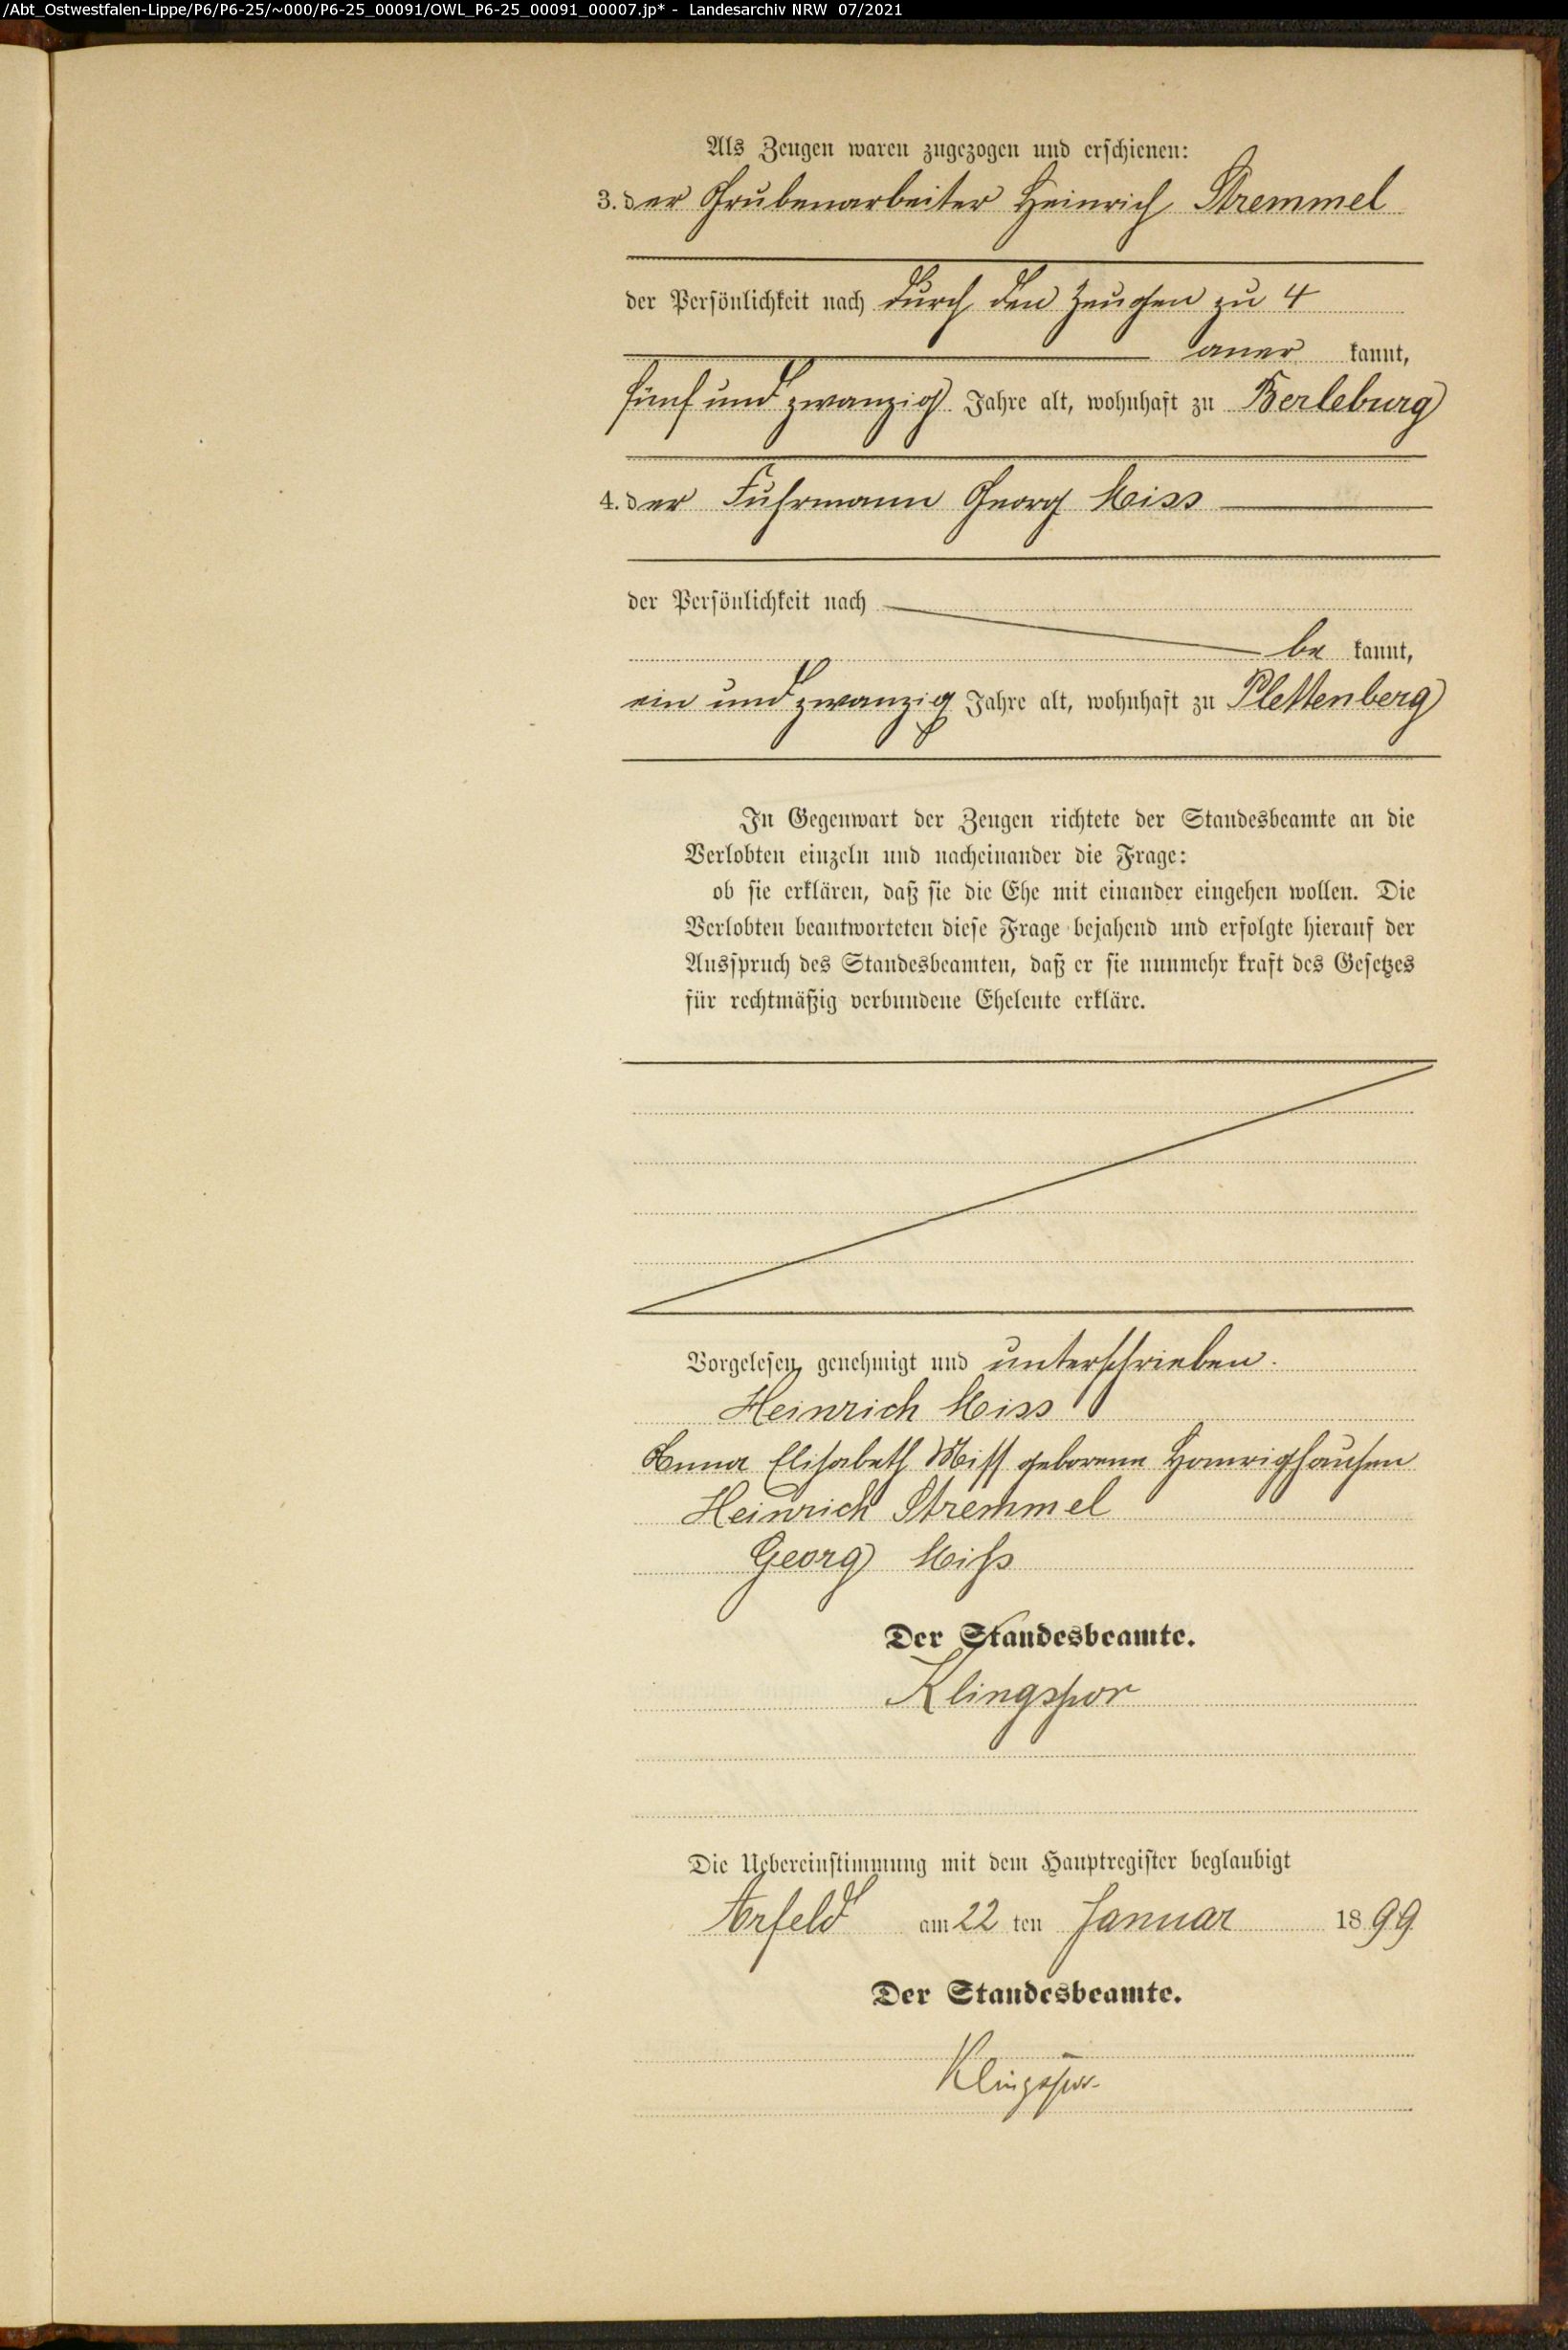 /Abt_Ostwestfalen-Lippe/P6/P6-25/~000/P6-25_00091/OWL_P6-25_00091_00007.jp* - Landesarchiv NRW 07/2021
Als Zeugen waren zugezogen und erschienen:
3. der Grubenarbeiter Heinrich Stremmel
der Persönlichkeit nach durch den Zeugen zu 4
aner kannt,
fünf und zwanzig Jahre alt, wohnhaft zu Berleburg
4. der Fuhrmann Georg Miss
der Persönlichkeit nach
be kannt,
ein und zwanzig Jahre alt, wohnhaft zu Plettenberg
In Gegenwart der Zeugen richtete der Standesbeamte an die
Verlobten einzeln und nacheinander die Frage:
ob sie erklären, daß sie die Ehe mit einander eingehen wollen. Die
Verlobten beantworteten diese Frage bejahend und erfolgte hierauf der
Ausspruch des Standesbeamten, daß er sie nunmehr kraft des Gesetzes
für rechtmäßig verbundene Eheleute erkläre.
Vorgelesen, genehmigt und unterschrieben.
Heinrich Miss
Anna Elisabeth Miss geborene Homrighausen
Heinrich Stremmel
Georg Miß
Der Standesbeamte.
Klingspor
Die Uebereinstimmung mit dem Hauptregister beglaubigt
Arfeld am 22 ten Januar 1899
Der Standesbeamte.
Klingspor